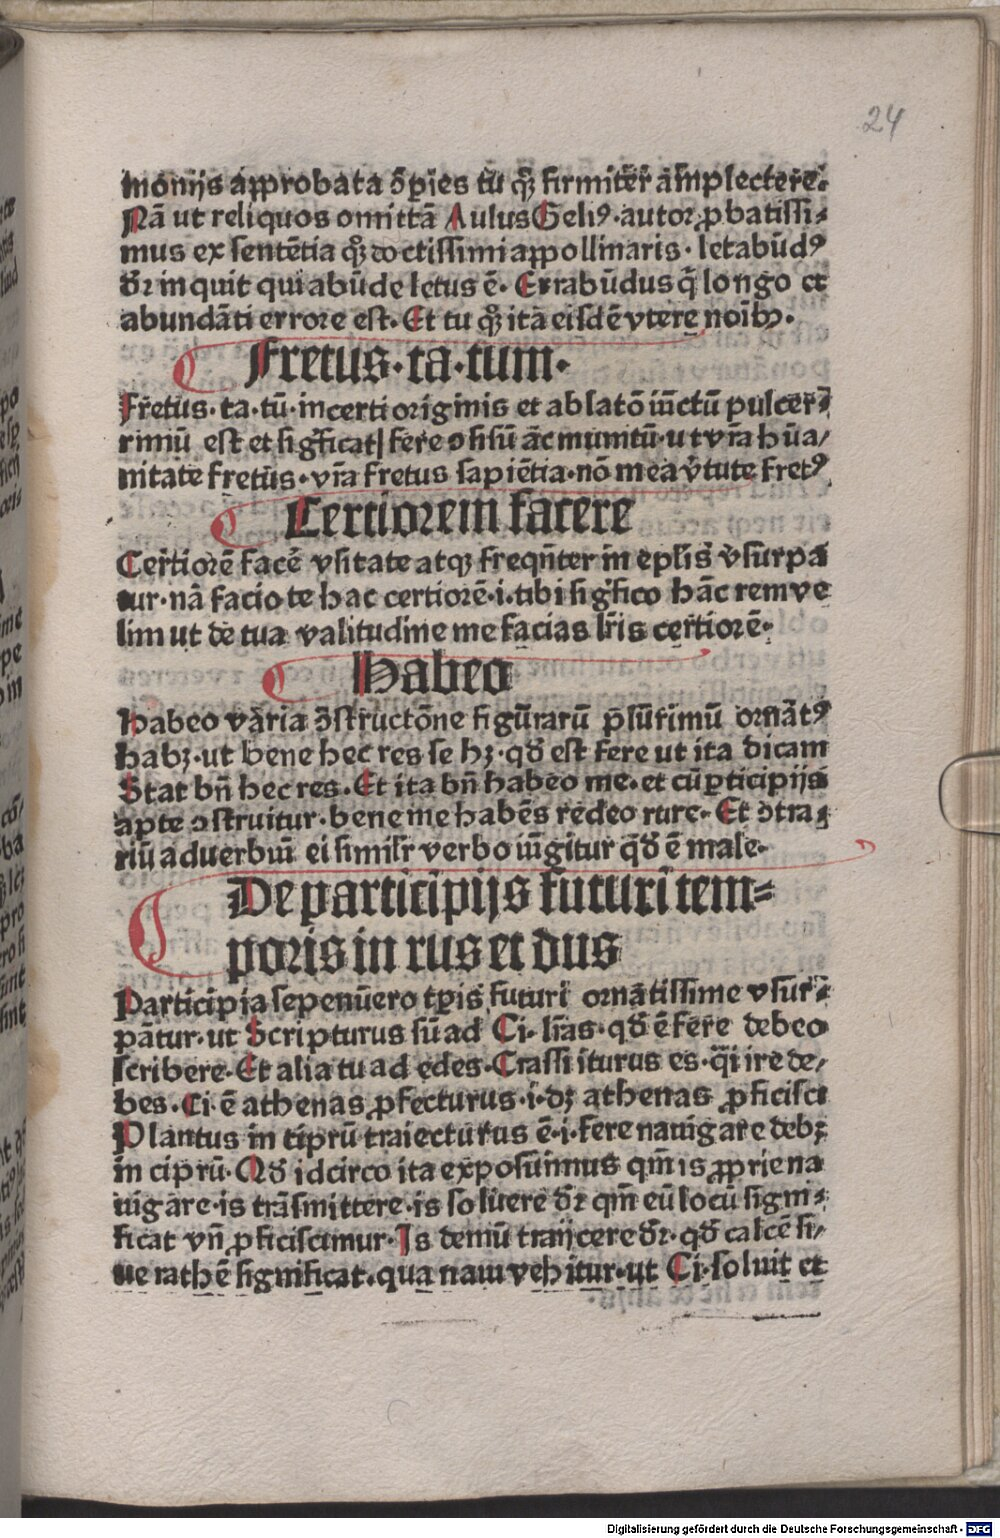 24
monijs approbata õpies tu q̃ firmiter amplectere.
Nã ut reliquos omittã Aulus Geliꝰ·autor ꝓbatissi-
mus ex sentẽtia qꝫ doctissimi appollinaris·letabũdꝰ
dr̃ inquit qui abũde letus ẽ·Errabũdus q̃ longo et
abundãti errore est·Et tu qꝫ itã eisdẽ vtere noĩbꝫ·
Fretus·ta·tum·
Fretus·ta·tũ·incerti originis et ablatõ iũctũ pulcer-
rimũ est et sigficat fere ↄfisũ ãc munitũ·ut vr̃a hũa/
nitate fretus·vr̃a fretus sapiẽtia·nõ mea v̾tute fretꝰ
Certiorem facere
Certiorẽ facẽ vsitate atqꝫ freqñter in epl̃is v̾surpã
tur·nã facio te hac certiorẽ·i·tibi sigfico hãc rem ve
lim ut de tua valitudine me facias lr̃is certiorẽ·
Habeo
Habeo varia ↄ̃structõne figũrarũ p̃sũtimũ ornãtꝰ
habꝫ·ut bene hec res se hꝫ·qđ est fere ut ita dicam
Stat bñ hec res·Et ita bñ habeo me·et cũ ꝑticipijs
apte ↄstruitur·bene me habẽs redeo rure·Et ↄtra-
riũ aduerbiũ ei similr̃ verbo iũgitur qđ ẽ male·
De participijs futuri tem=
poris in rus et dus
Participia sepenũero tp̃is futuri ornãtissime vsur-
pãtur·ut Scripturus sũ ad Ci·lr̃as·qđ ẽ fere debeo
scribere·Et alia tu ad edes·Crassi iturus es·q̃i ire de/
bes·Ci·ẽ athenas ꝓfecturus·i·dꝫ athenas ꝓficisci
Plantus in ciprũ traiecturus ẽ·i·fere nauigare debꝫ
in ciprũ·Qđ idcirco ita exposuimus qm̃ is ꝓprie na
uigare·is trãsmittere·is soluere dr̃ qm̃ eũ locũ signi-
ficat vñ ꝓficiscimur·Is demũ traijcere dr̃·qđ calcẽ si/
ue rathẽ significat·qua naui vehitur·ut Ci·soluit et
Digitalisierung gefördert durch die Deutsche Forschungsgemeinschaft - DFG